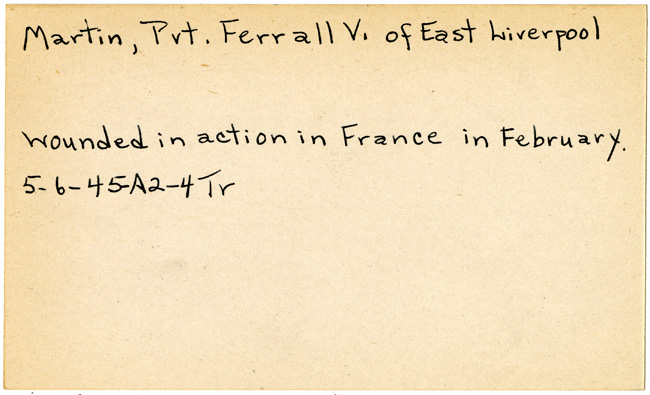 Martin, Pvt. Ferrall V. of East Liverpool
wounded in action in France in February.
5-6-45-A2-4 Tr